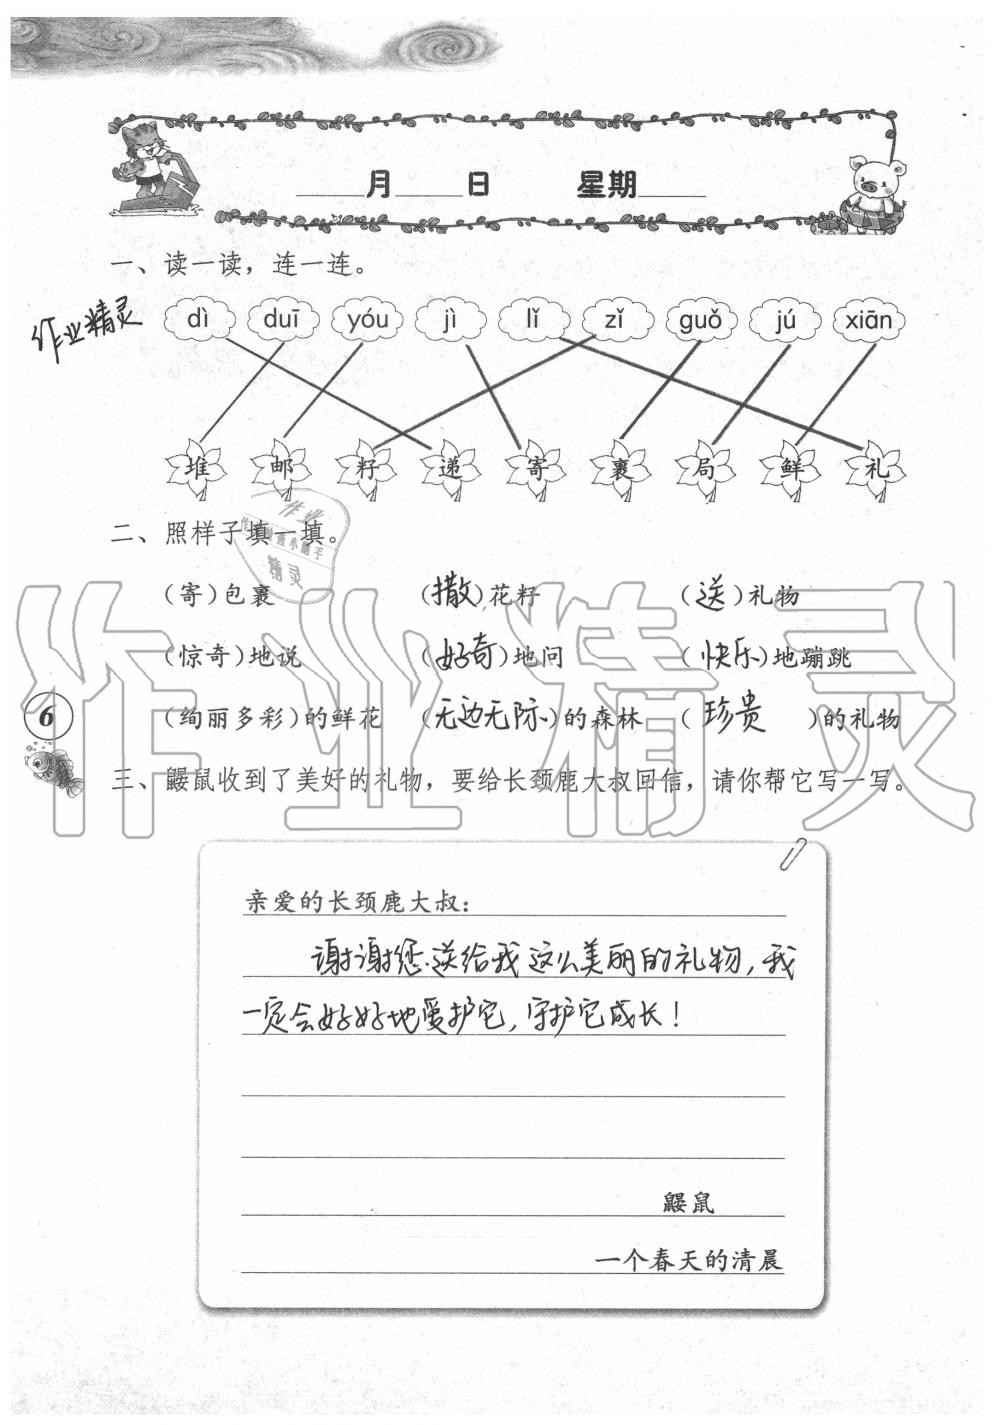 月 日 星期
一、读一读，连一连。
作业精灵
dì duī yóu jì lǐ zǐ guǒ jú xiān
堆 邮 籽 递 寄 裹 局 鲜 礼
二、照样子填一填。
作业
精灵
（寄）包裹 （撒）花籽 （送）礼物
（惊奇）地说 （好奇）地问 （快乐）地蹦跳
（绚丽多彩）的鲜花 （无边无际）的森林 （珍贵）的礼物
6
三、鼹鼠收到了美好的礼物，要给长颈鹿大叔回信，请你帮它写一写。
作业精灵
亲爱的长颈鹿大叔：
谢谢您送给我这么美丽的礼物，我
一定会好好地爱护它，守护它成长！
鼹鼠
一个春天的清晨